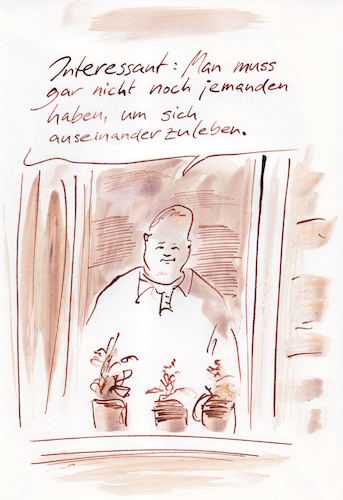 Interessant: Man muss
gar nicht noch jemanden
haben, um sich
auseinanderzuleben.